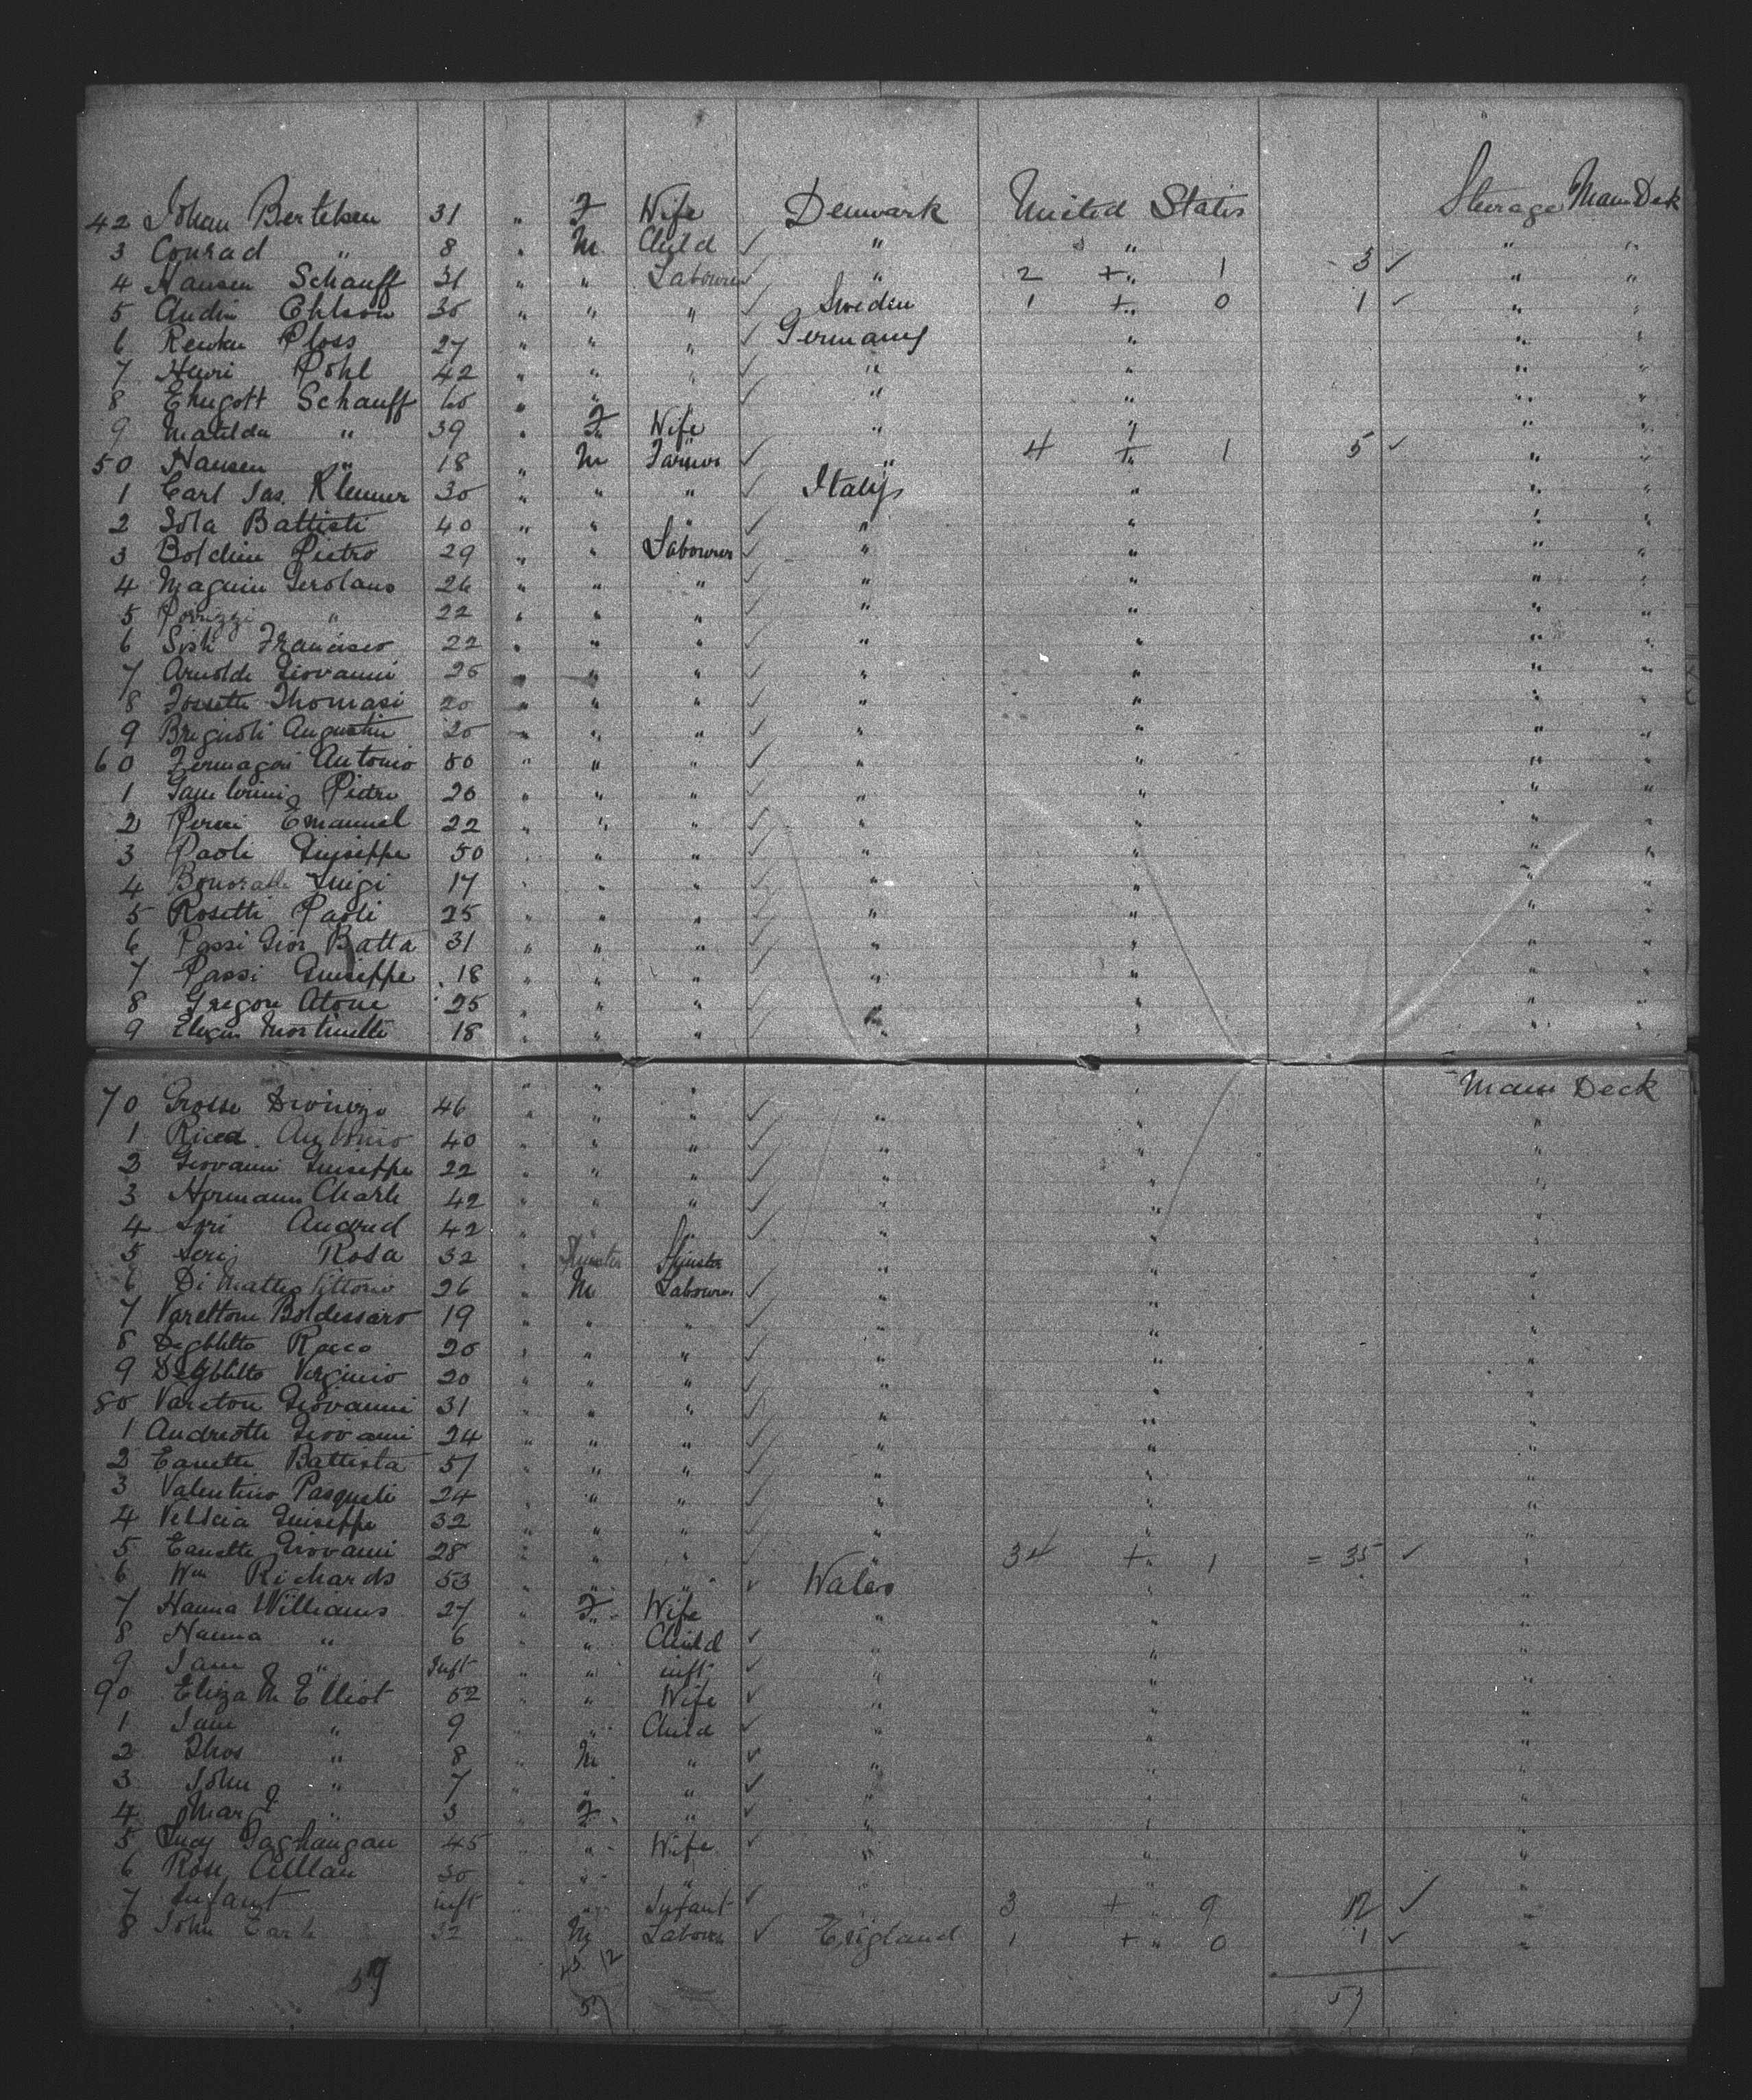 42 Johan Bertelsen 31 " F Wife Denmark United States Steerage Main Deck
3 Conrad " 8 " M Child ✓ " " " "
4 Hansen Schauff 31 " " Labourer ✓ " 2 + " 1 3 ✓ " "
5 Ohlson 30 " " " ✓ Sweden 1 + " 0 1 ✓ " "
6 Ploss 27 " " " ✓ Germany " " "
7 Henri Pohl 42 " " " ✓ " " " "
8 Schauff 60 " " ✓ " " " "
9 Matilda " 39 " F Wife " " " "
50 Hansen " 18 " M Farmer ✓ " 4 + " 1 5 ✓ " "
1 Carl Jas. Klemer 30 " " " ✓ Italy " " "
2 Sola Battisti 40 " " " ✓ " " " "
3 Boldini Pietro 29 " " Labourer ✓ " " " "
4 Magnini Gerolano 26 " " " ✓ " " " "
5 " 22 " " " ✓ " " " "
6 Sisti Francisco 22 " " " ✓ " " " "
7 Arnoldi Giovanni 25 " " " ✓ " " " "
8 Thomasi 20 " " " ✓ " " " "
9 Brignoli Augustin 20 " " " ✓ " " " "
60 Antonio 50 " " " ✓ " " " "
1 Pietro 20 " " " ✓ " " " "
2 Emanuel 22 " " " ✓ " " " "
3 Paoli Giuseppe 50 " " " ✓ " " " "
4 Luigi 17 " " " ✓ " " " "
5 Rosetti Paoli 25 " " " ✓ " " " "
6 Passi Gior Batta 31 " " " ✓ " " " "
7 Passi Guiseppe 18 " " " ✓ " " " "
8 Gregori Atone 25 " " " ✓ " " " "
9 Martinetti 18 " " " ✓ " " " "
70 Grosse 46 " " " ✓ " " Main Deck
1 Antonio 40 " " " ✓ " " "
2 Giovanni Guiseppe 22 " " " ✓ " " "
3 Hermann Charle 42 " " " ✓ " " "
4 42 " " " ✓ " " "
5 Rosa 32 " Spinster Spinster " " "
6 Di Matteo Vittorio 26 " M Labourer ✓ " " "
7 Varettoni Boldessaro 19 " " " ✓ " " "
8 Rocco 20 " " " ✓ " " "
9 Virginio 20 " " " ✓ " " "
80 Vareton Giovanni 31 " " " ✓ " " "
1 Andreotti Giovanni 24 " " " ✓ " " "
2 Battista 51 " " " ✓ " " "
3 Valentino Pasquali 24 " " " ✓ " " "
4 Guiseppe 32 " " " ✓ " " "
5 Giovanni 28 " " " ✓ " 34 + " 1 = 35 ✓ "
6 Wm Richards 53 " " " ✓ Wales " "
7 Hanna Williams 27 " F Wife " " "
8 Hanna " 6 " " Child ✓ " " "
9 Jane " Inft " " inft ✓ " " "
90 Eliza M Elliot 52 " " Wife ✓ " " "
1 Jane " 9 " " Child ✓ " " "
2 Thos " 8 " M " ✓ " " "
3 John " 7 " " " ✓ " " "
4 Mary " 3 " F " ✓ " " "
5 Lucy 45 " " Wife ✓ " " "
6 Rose 30 " " " " " "
7 Infant inft " " Infant ✓ 3 + " 9 12 ✓ "
8 John Earl 32 M Labourer ✓ England 1 + " 0 1 ✓ "
57 45 12 57
57